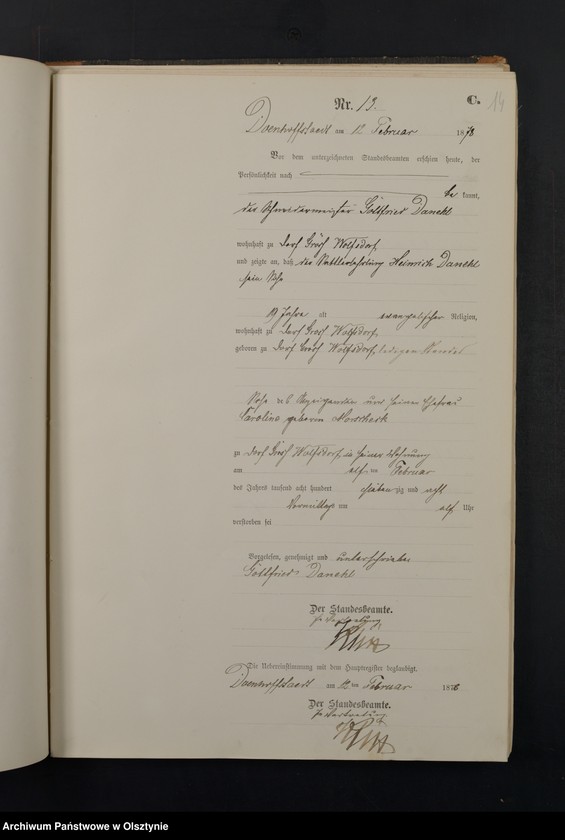 C.
14
Nr. 13.
Doenhoffstaedt am 12 Februar 1878
Vor dem unterzeichneten Standesbeamten erschien heute, der
Persönlichkeit nach
be kannt,
der Schneidermeister Gottfried Danehl
wohnhaft zu Dorf Groß Wolfsdorf
und zeigte an, daß der Sattlerlehrling Heinrich Danehl
sein Sohn
19 Jahre alt evangelischer Religion,
wohnhaft zu Dorf Groß Wolfsdorf,
geboren zu Dorf Groß Wolfsdorf, ledigen Standes
Sohn des Anzeigenden und seiner Ehefrau
Caroline geboren
zu Dorf Groß Wolfsdorf, in seiner Wohnung
am elf ten Februar
des Jahres tausend acht hundert sieben zig und acht
Vormittags um elf Uhr
verstorben sei
Vorgelesen, genehmigt und unterschrieben
Gottfried Danehl
Der Standesbeamte.
In Vertretung
Die Uebereinstimmung mit dem Hauptregister beglaubigt.
Doenhoffstaedt am 12ten Februar 1878
Der Standesbeamte.
In Vertretung
Archiwum Państwowe w Olsztynie